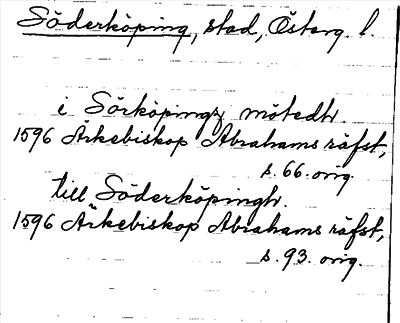 Söderköping, stad, Österg. l.
i Sörköpings mötedh
1596 Ärkebiskop Abrahams räfst,
s. 66. orig.
till Söderköpingh.
1596 Ärkebiskop Abrahams räfst,
s. 93. orig.